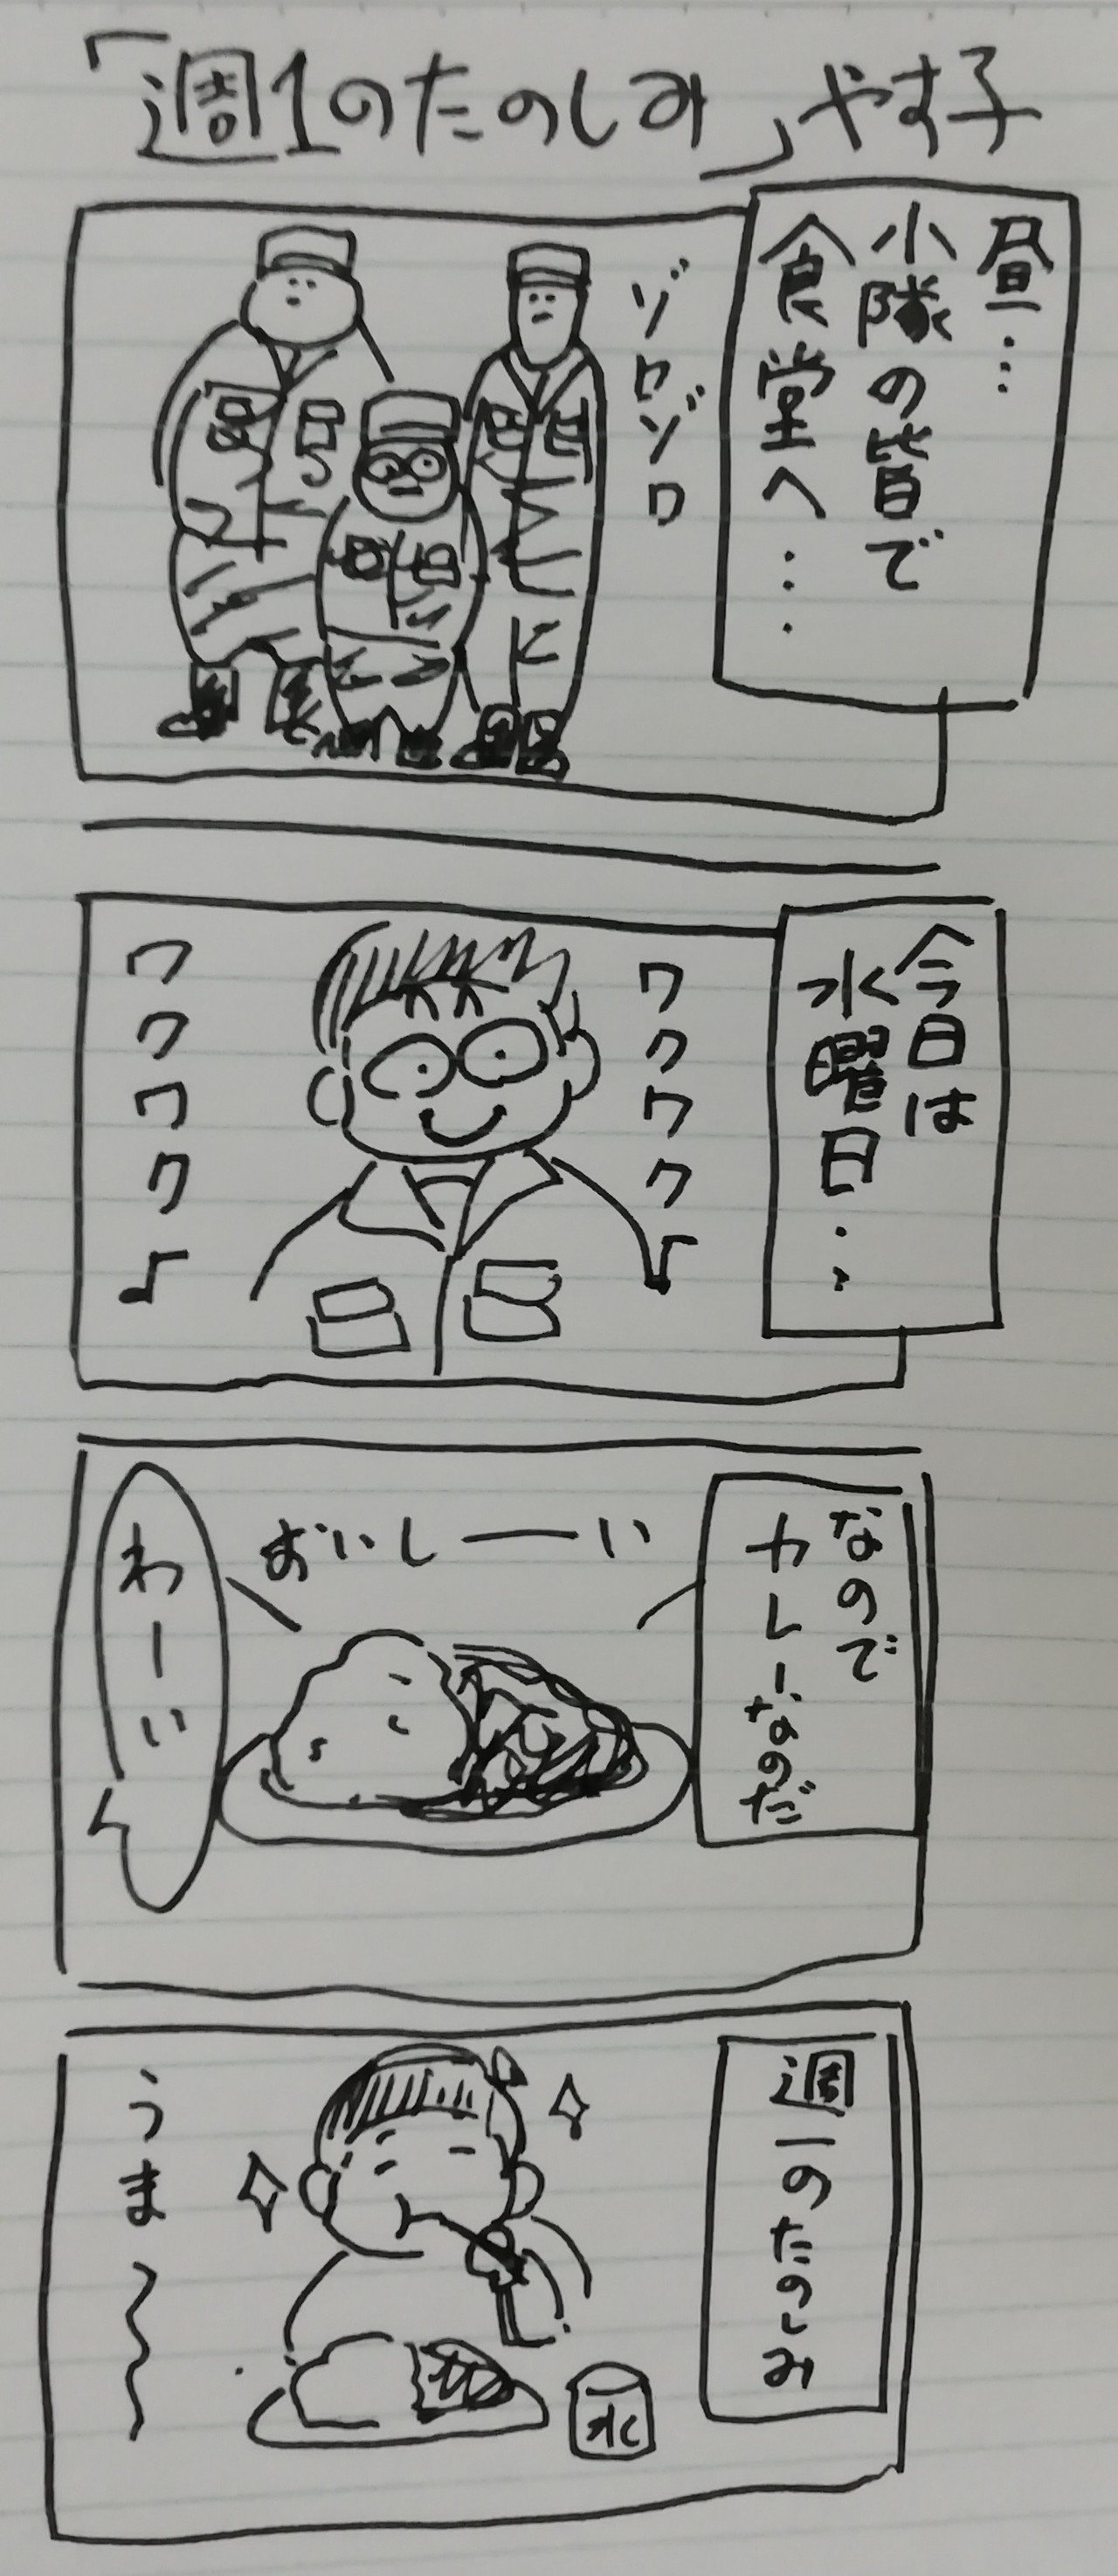 「週1のたのしみ」やす子
昼…
小隊の皆で
食堂へ…
ゾロゾロ
今日は
水曜日…
ワクワク♪
ワクワク♪
なので
カレーなのだ
おいしーい
わーい
週一のたのしみ
うま〜
水